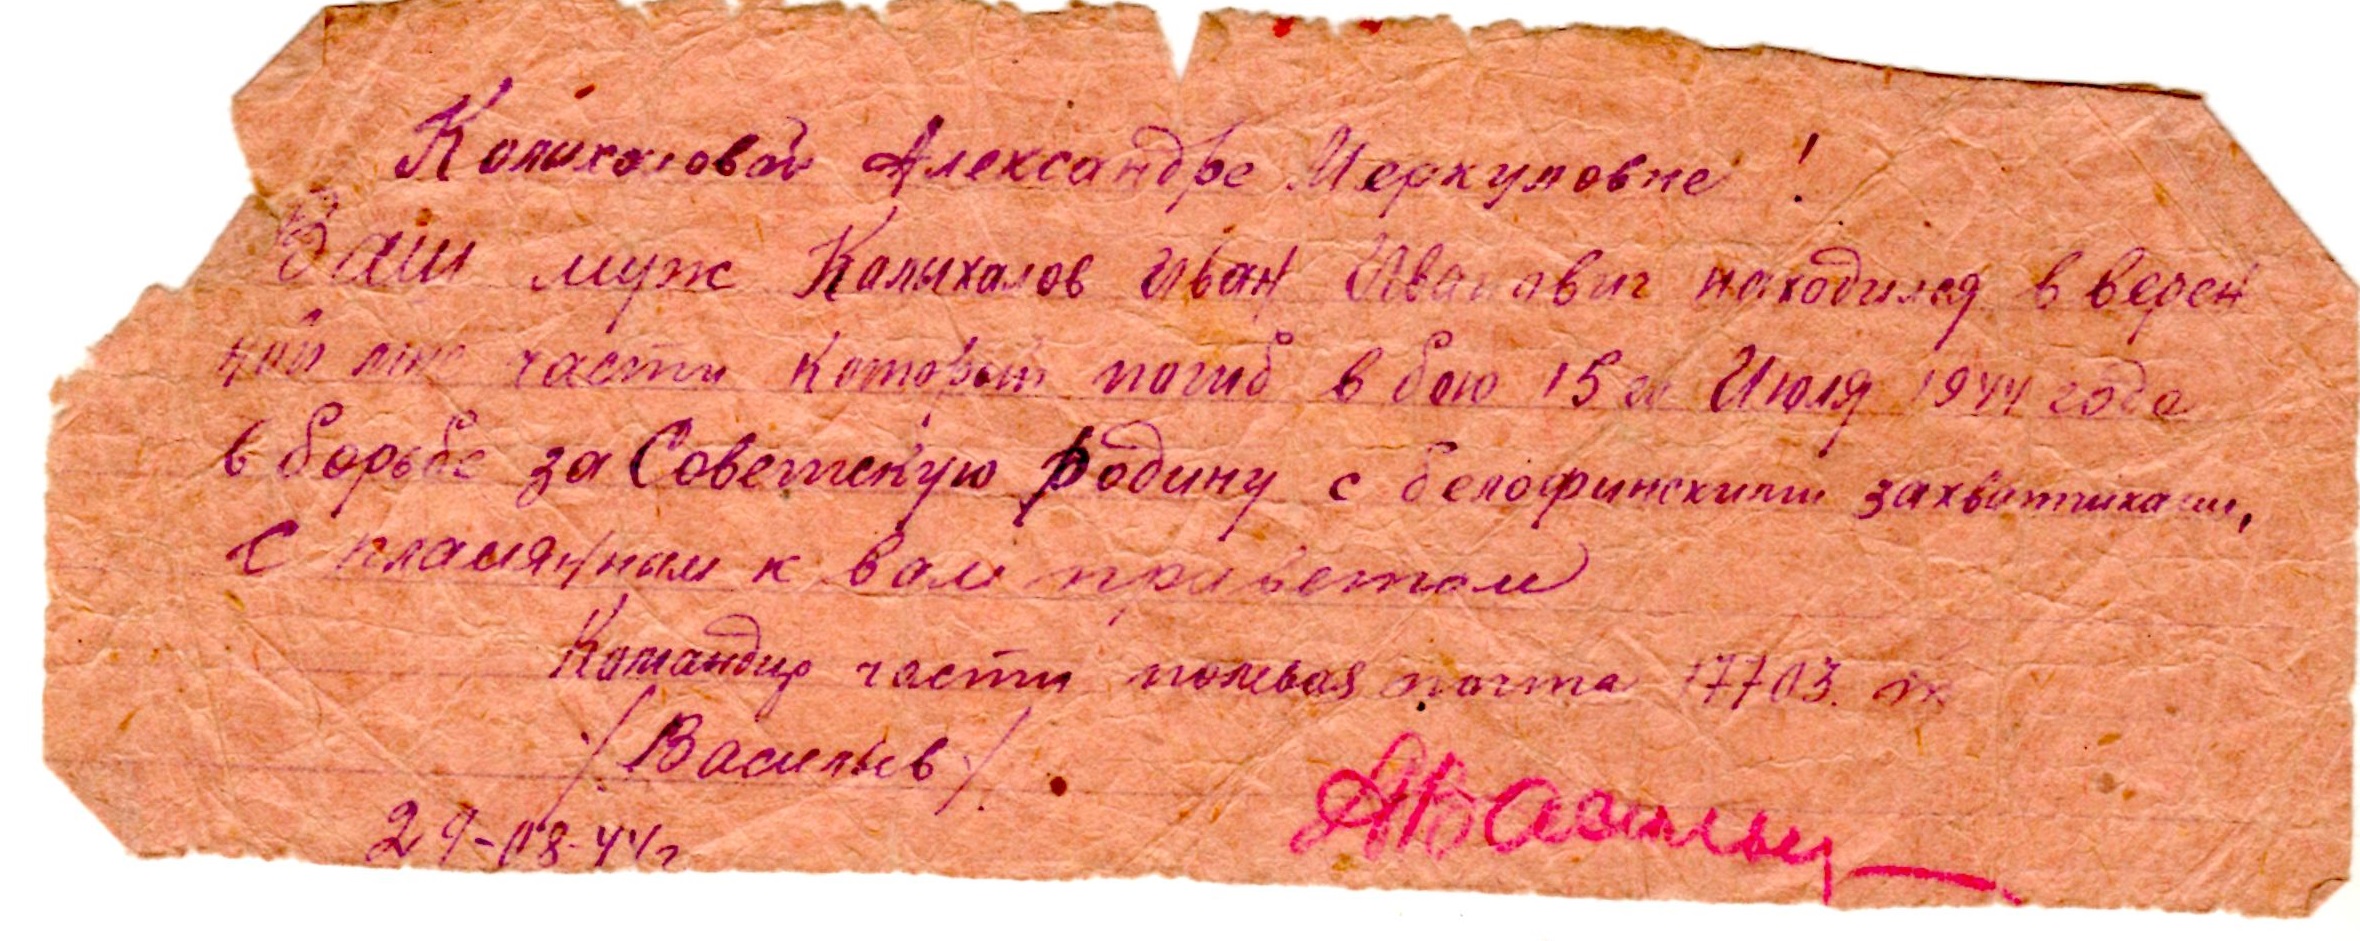 Колыхаловой Александре Меркуловне!
Ваш муж Колыхалов Иван Иванович находился в верен
ной мне части который погиб в бою 15го Июля 1944 года
в борьбе за Советскую Родину с белофинскими захватчиками,
С пламянным к вам приветом
Командир части полевая почта 17703.
/Васильев/
29-08-44г
АВасильев